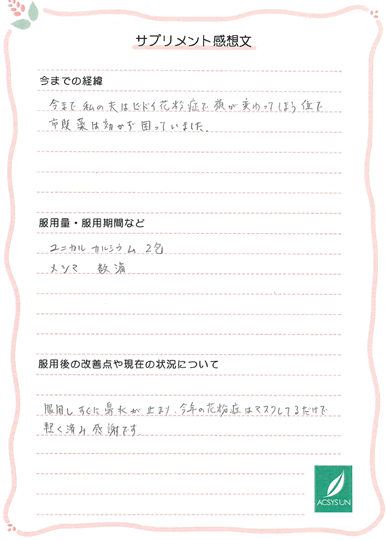 サプリメント感想文
今までの経緯
今まで私の夫はヒドイ花粉症で顔が変わってしまう位で
市販薬は効かず困っていました。
服用量・服用期間など
ユニカル カルシウム 2包
メンマ 数滴
服用後の改善点や現在の状況について
服用しすぐに鼻水が止まり、今年の花粉症はマスクしてるだけで
軽く済み感謝です
ACSYSUN